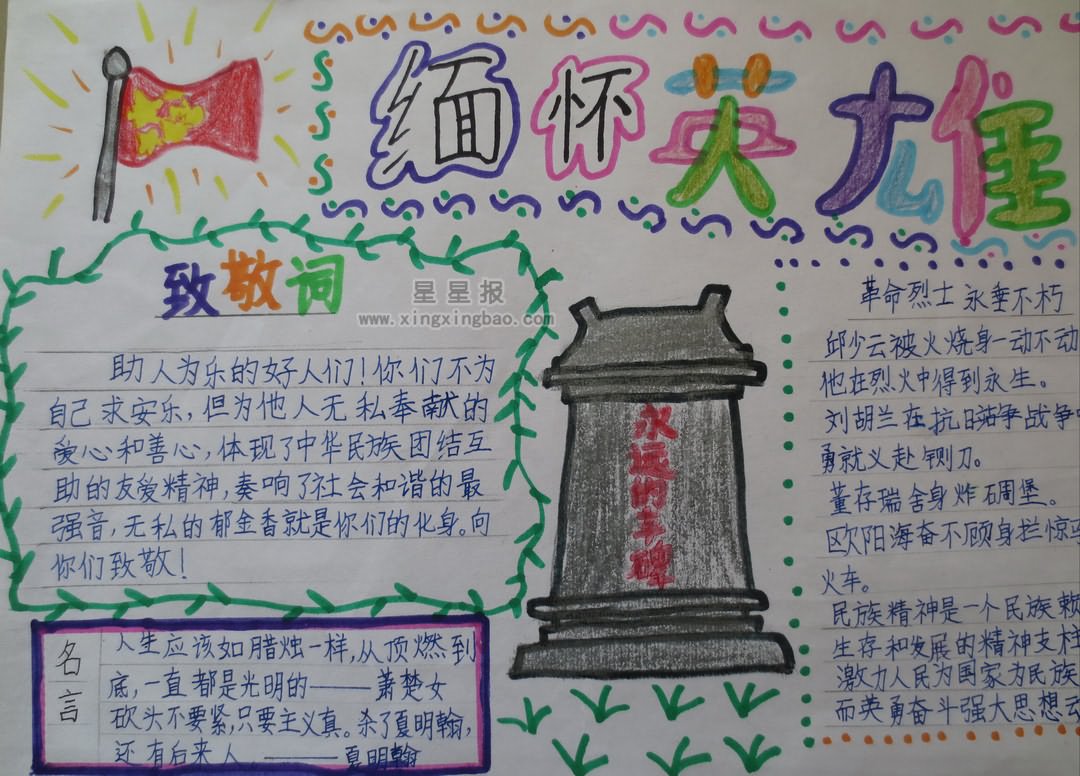 缅怀英雄
致敬词
星星报
www.xingxingbao.com
助人为乐的好人们！你们不为
自己求安乐，但为他人无私奉献的
爱心和善心，体现了中华民族团结互
助的友爱精神，奏响了社会和谐的最
强音，无私的郁金香就是你们的化身。向
你们致敬！
名言
人生应该如腊烛一样，从顶燃到
底，一直都是光明的——萧楚女
砍头不要紧，只要主义真。杀了夏明翰，
还有后来人，——夏明翰
永远的丰碑
革命烈士 永垂不朽
邱少云被火烧身一动不动
他在烈火中得到永生。
刘胡兰在抗日战争战争
勇就义赴铡刀。
董存瑞舍身炸碉堡。
欧阳海奋不顾身拦惊马
火车。
民族精神是一个民族赖
生存和发展的精神支柱
激力人民为国家为民族
而英勇奋斗强大思想动